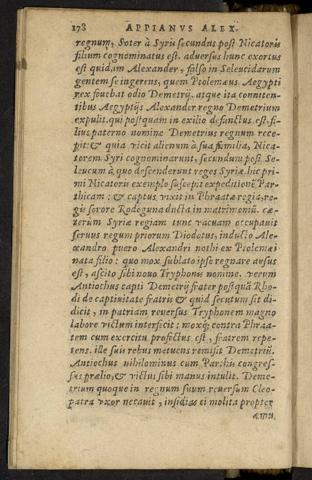 178 APPIANVS ALEX.
regnum, Soter à Syris secundus post Nicatoris
filium cognominatus est. aduersus hunc exortus
est quidam Alexander, falso in Seleucidarum
gentem se ingerens, quem Ptolemæus Aegypti
rex fouebat odio Demetrij. atque ita conniten-
tibus Aegyptijs Alexander regno Demetrium
expulit. qui postquam in exilio defunctus est. fi-
lius paterno nomine Demetrius regnum rece-
pit: & quia vicit alienum à sua familia, Nica-
torem Syri cognominarunt, secundum post Se-
leucum à quo descenderunt reges Syriæ. hic pri-
mi Nicatoris exemplo suscepit expeditionē Par-
thicam: & captus vixit in Phraatæ regia, re-
gis sorore Rodoguna ducta in matrimoniū. cæ-
terùm Syriæ regiam tunc vacuam occupauit
seruus regum priorum Diodotus, inducto Ale-
xandro puero Alexandri nothi ex Ptolemæi
nata filio: quo mox sublato ipse regnare ausus
est, ascito sibi nouo Tryphonis nomine. verum
Antiochus capti Demetrij frater postquā Rho-
di de captiuitate fratris & quid secutum sit di-
dicit, in patriam reuersus Tryphonem magno
labore victum interficit: moxq; contra Phraa-
tem cum exercitu profectus est, fratrem repe-
tens. ille suis rebus metuens remisit Demetriū.
Antiochus nihilominus cum Parthis congres-
sus prælio, & victus sibi manus intulit. Deme-
trium quoque in regnum suum reuersum Cleo-
patra vxor necauit, insidias ei molita propter